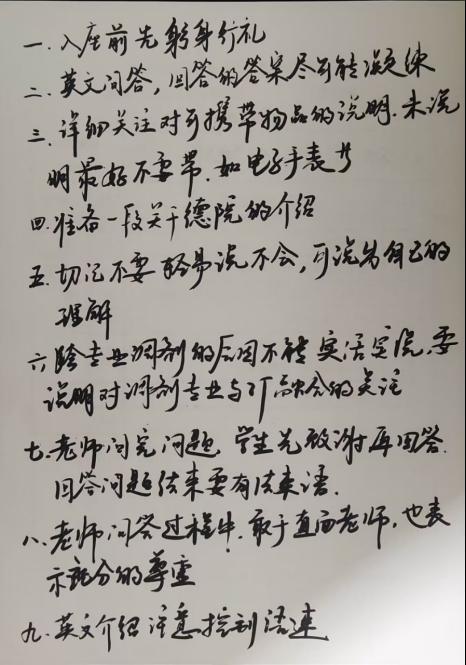 一.入座前先躬身行礼
二.英文问答,回答的答案尽可能凝练
三.详细关注对可携带物品的说明.未说
明最好不要带.如电子手表等
四.准备一段关于德院的介绍
五.切记不要轻易说不会,可说出自己的
理解
六.跨专业调剂的原因不能实话实说,要
说明对调剂专业与IT融合的关注
七.老师问完问题.学生先致谢再回答.
回答问题结束要有结束语.
八.老师问答过程中.敢于直面老师,也表
示充分的尊重
九.英文介绍注意控制语速